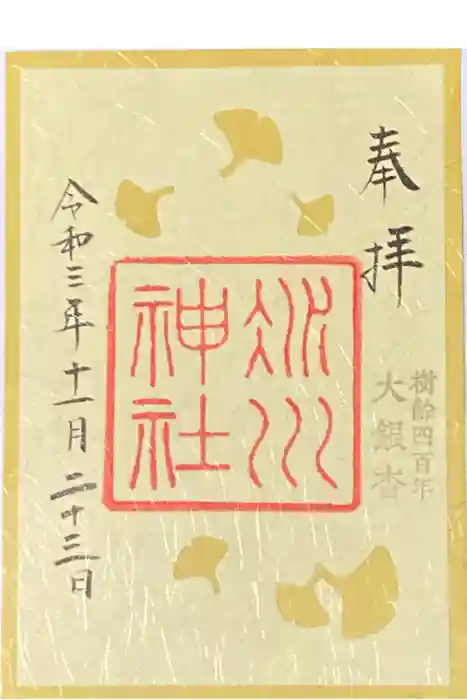 奉拝
樹齢四百年
大銀杏
冰川
神社
令和三年十一月二十三日